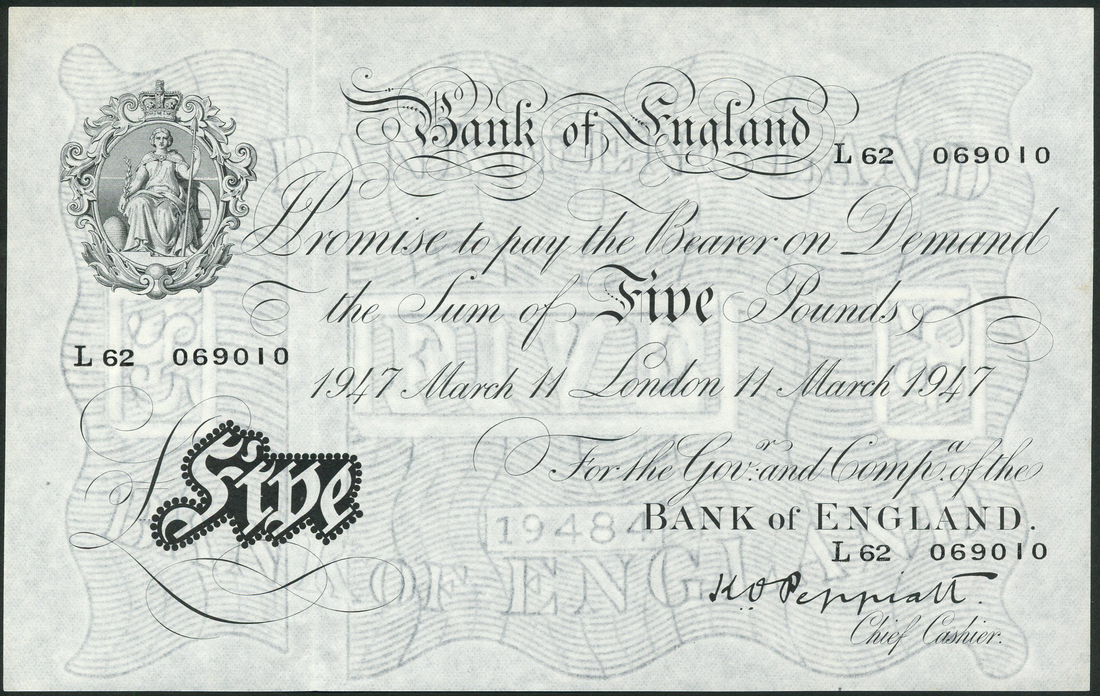 Bank of England
L 62 069010
I Promise to pay the Bearer on Demand
the Sum of Five Pounds
L 62 069010
1947 March 11 London 11 March 1947
£Five
For the Gov.r and Comp.a of the
BANK of ENGLAND.
L 62 069010
K O Peppiatt.
Chief Cashier.
BANK OF ENGLAND
FIVE
19484
BANK OF ENGLAND